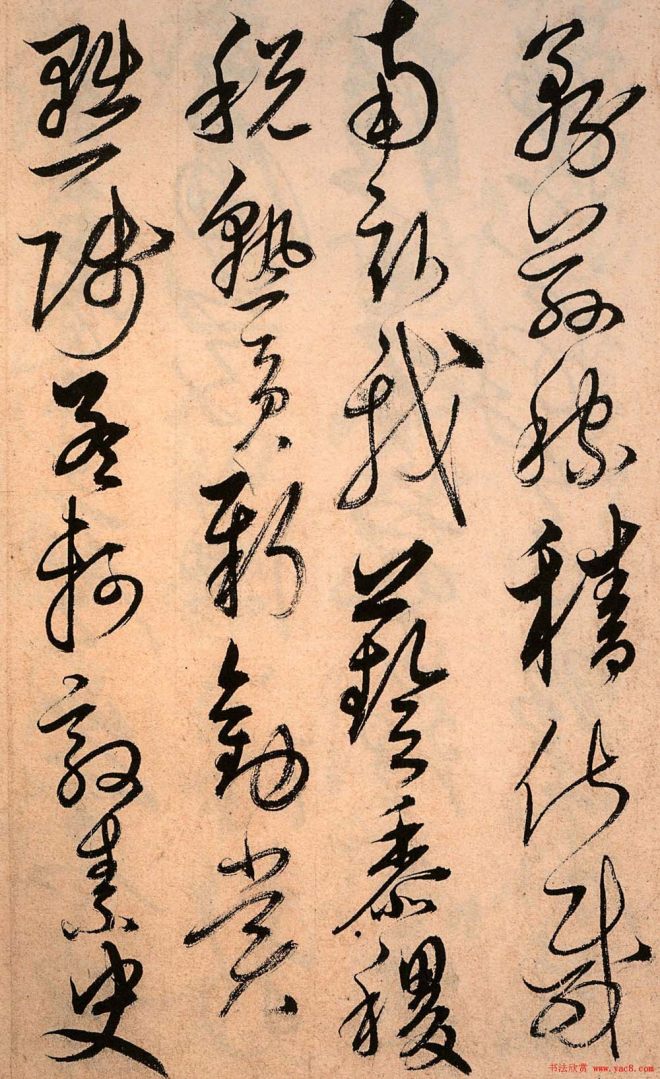 務茲稼穡俶載
南畝我藝黍稷
稅熟貢新勸賞
黜陟孟軻敦素史
书法欣赏 www.yac8.com